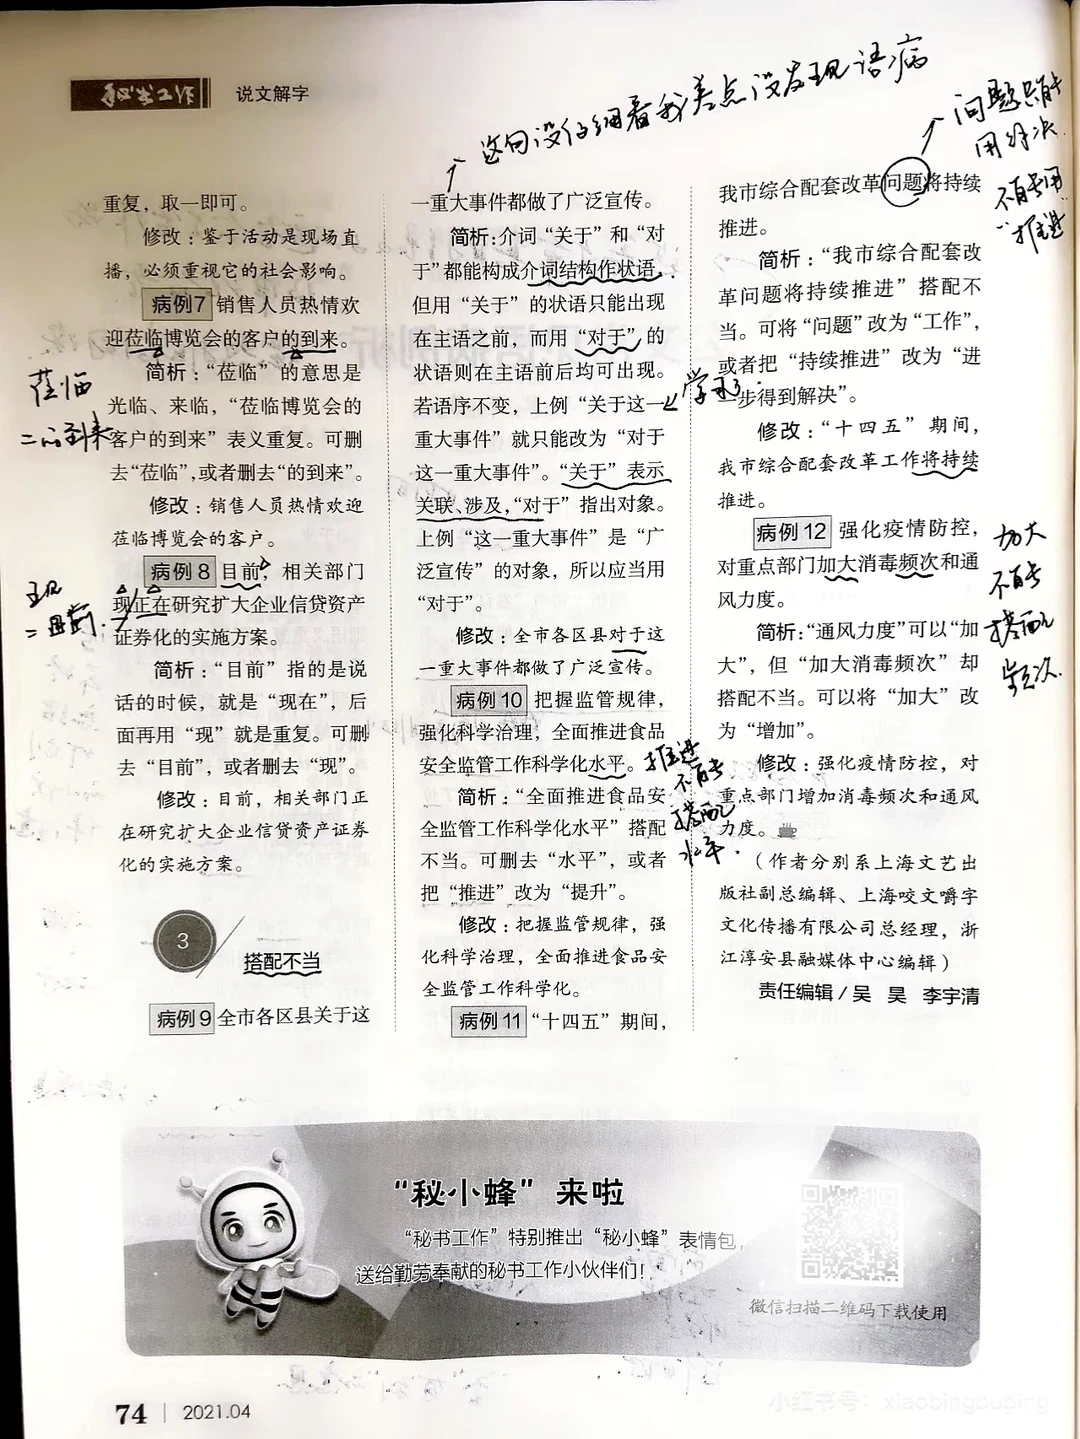 秘书工作 说文解字
这句没仔细看我差点没发现语病
问题只能
用解决
不能用
“推进”
重复，取一即可。
修改：鉴于活动是现场直
播，必须重视它的社会影响。
病例7 销售人员热情欢
迎莅临博览会的客户的到来。
简析：“莅临”的意思是
光临、来临，“莅临博览会的
客户的到来”表义重复。可删
去“莅临”，或者删去“的到来”。
修改：销售人员热情欢迎
莅临博览会的客户。
莅临
=的到来
病例8 目前，相关部门
现正在研究扩大企业信贷资产
证券化的实施方案。
现
=目前.
简析：“目前”指的是说
话的时候，就是“现在”，后
面再用“现”就是重复。可删
去“目前”，或者删去“现”。
修改：目前，相关部门正
在研究扩大企业信贷资产证券
化的实施方案。
3
搭配不当
病例9 全市各区县关于这
一重大事件都做了广泛宣传。
简析：介词“关于”和“对
于”都能构成介词结构作状语，
但用“关于”的状语只能出现
在主语之前，而用“对于”的
状语则在主语前后均可出现。
若语序不变，上例“关于这一
重大事件”就只能改为“对于
这一重大事件”。“关于”表示
关联、涉及，“对于”指出对象。
上例“这一重大事件”是“广
泛宣传”的对象，所以应当用
“对于”。
学习了.
修改：全市各区县对于这
一重大事件都做了广泛宣传。
病例10 把握监管规律，
强化科学治理，全面推进食品
安全监管工作科学化水平。
推进
不能
搭配
水平.
简析：“全面推进食品安
全监管工作科学化水平”搭配
不当。可删去“水平”，或者
把“推进”改为“提升”。
修改：把握监管规律，强
化科学治理，全面推进食品安
全监管工作科学化。
病例11 “十四五”期间，
我市综合配套改革问题将持续
推进。
简析：“我市综合配套改
革问题将持续推进”搭配不
当。可将“问题”改为“工作”，
或者把“持续推进”改为“进
一步得到解决”。
修改：“十四五”期间，
我市综合配套改革工作将持续
推进。
病例12 强化疫情防控，
对重点部门加大消毒频次和通
风力度。
加大
不能
搭配
频次.
简析：“通风力度”可以“加
大”，但“加大消毒频次”却
搭配不当。可以将“加大”改
为“增加”。
修改：强化疫情防控，对
重点部门增加消毒频次和通风
力度。
（作者分别系上海文艺出
版社副总编辑、上海咬文嚼字
文化传播有限公司总经理，浙
江淳安县融媒体中心编辑）
责任编辑/吴 昊 李宇清
“秘小蜂”来啦
“秘书工作”特别推出“秘小蜂”表情包，
送给勤劳奉献的秘书工作小伙伴们！
微信扫描二维码下载使用
74 | 2021.04
小红书号：xiaobingbuping